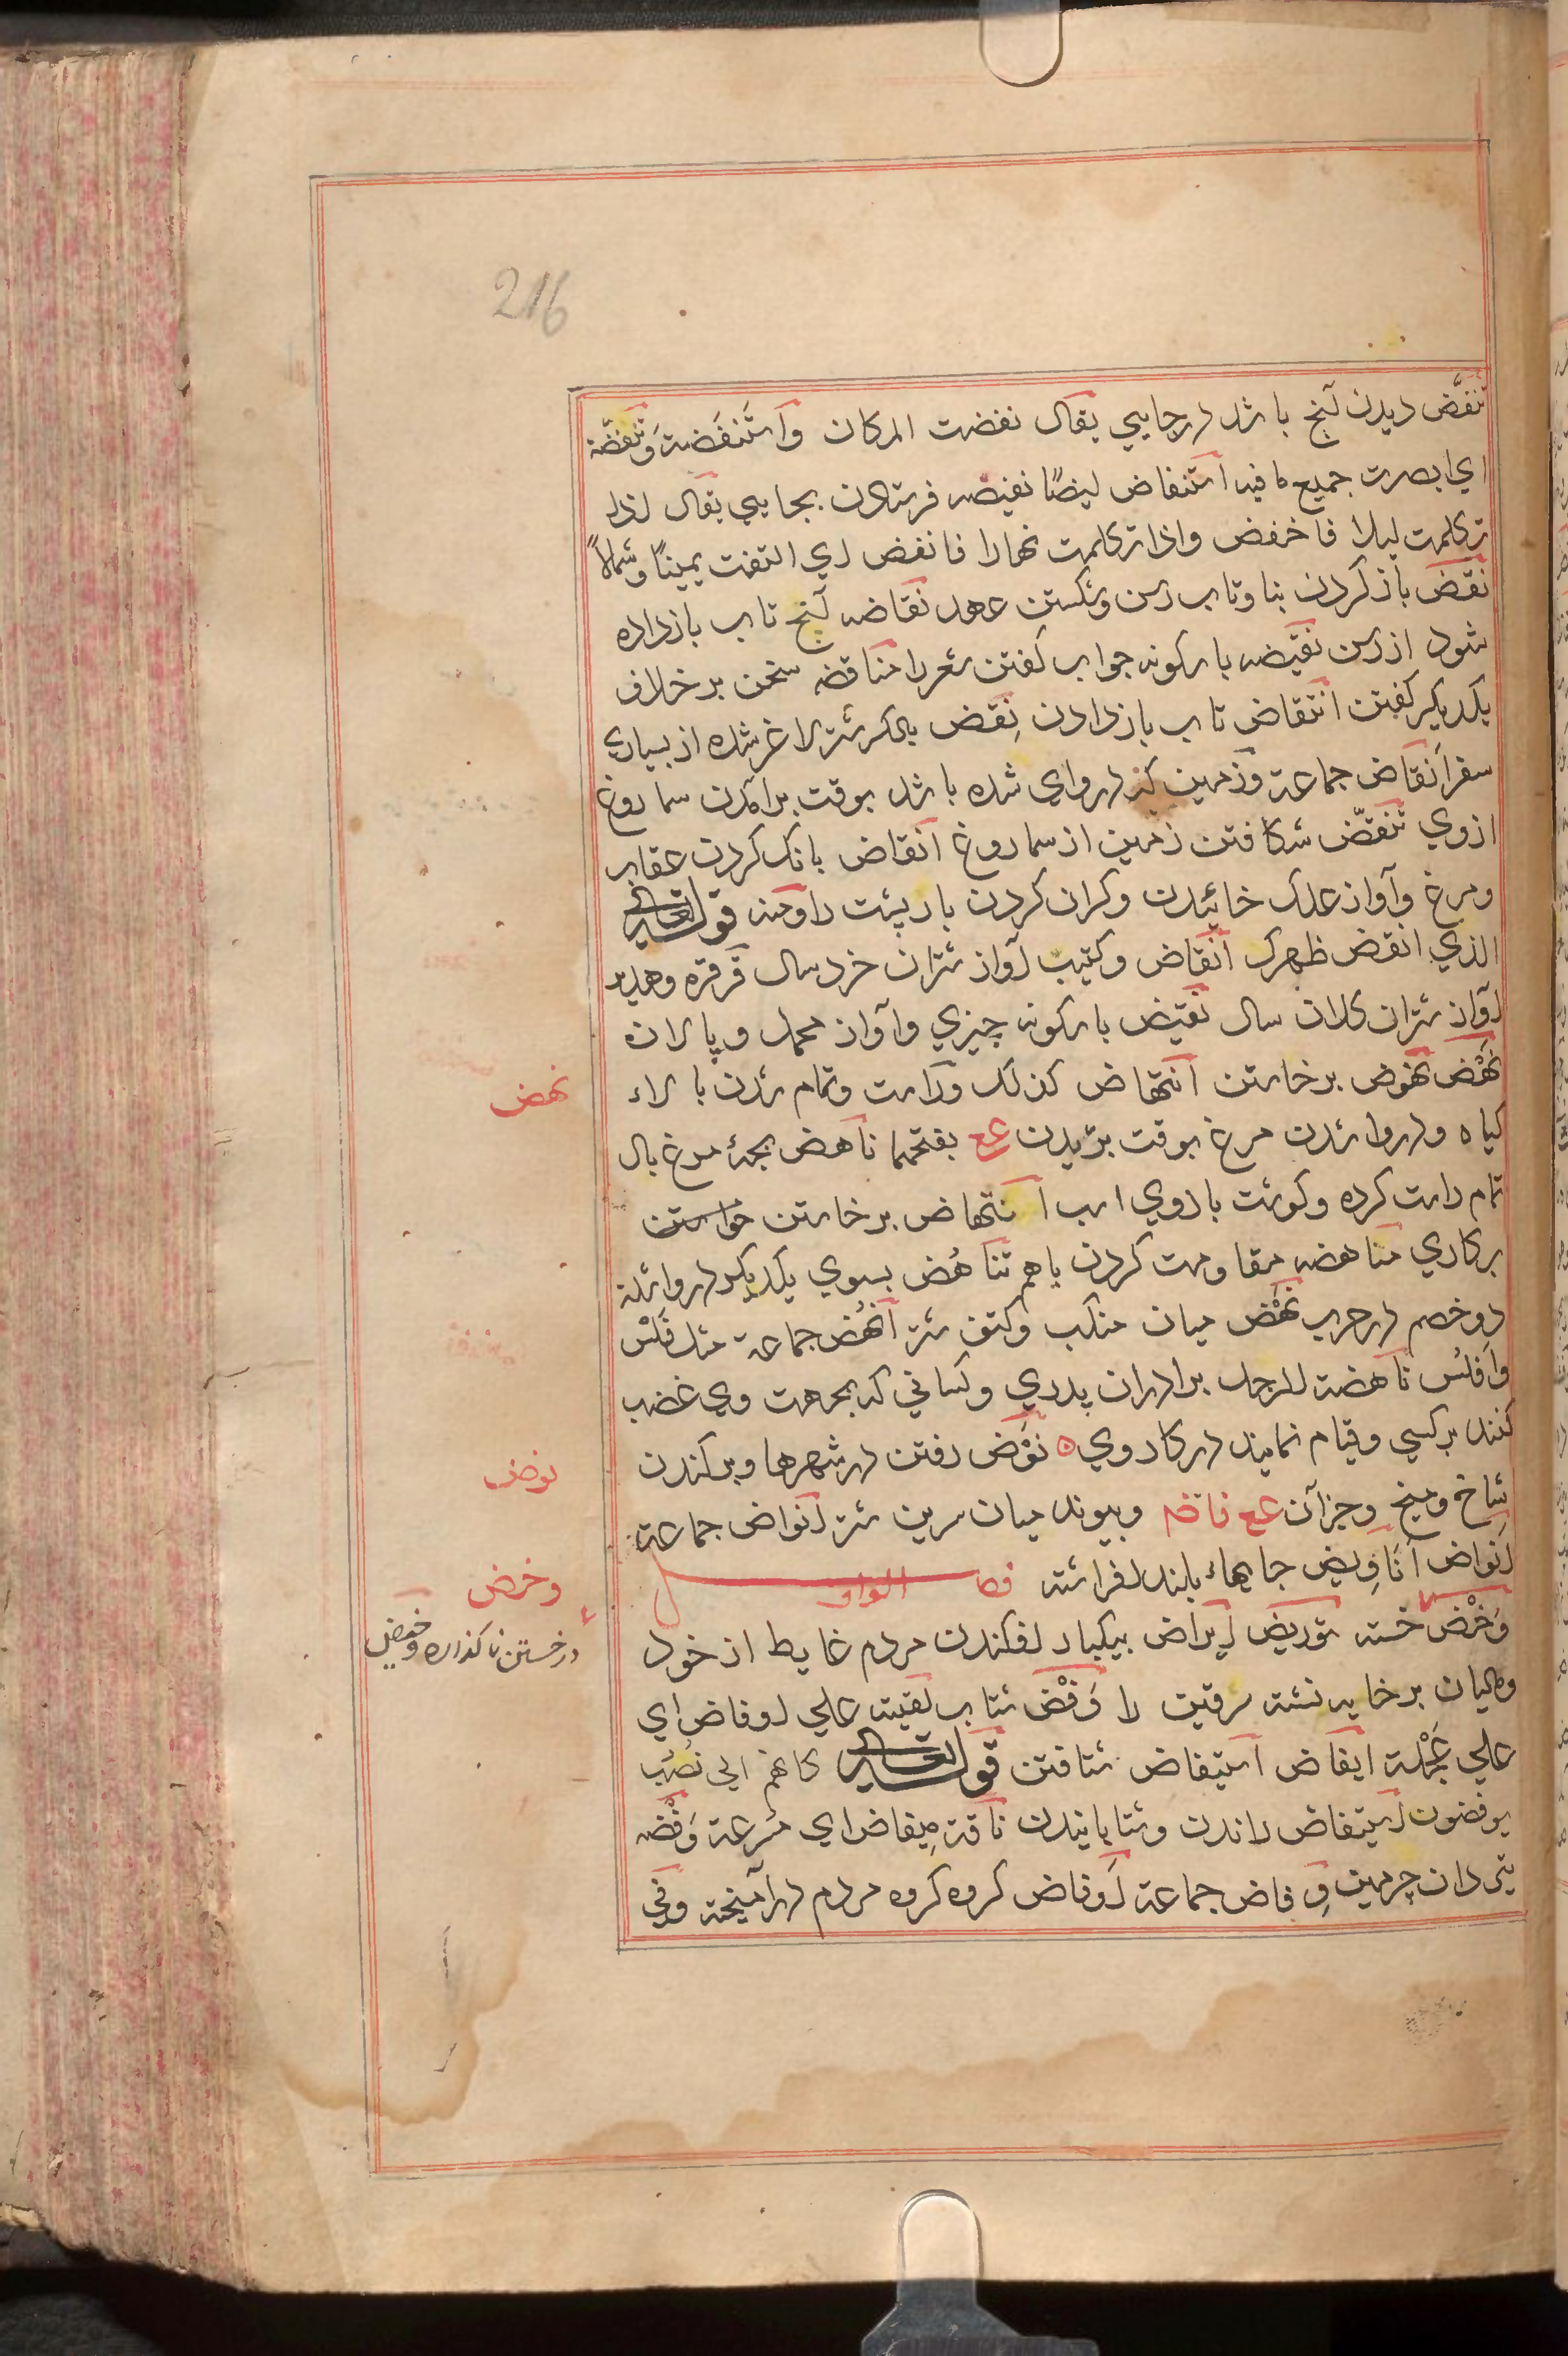 216
تنفّض دیدن آنچ باشد در جایی یقال نفضت المکان واستَنفَضتَه وتنفّضته
اي ابصرت جمیع ما فیه استنفاض ایضًا نفیضه فرستادن بجایی یقال اذا
تکلمت لیلا فاخفض واذا تکلمت نهارا فانفض اي التفت یمینًا وشمالاً
نقض باز کردن بنا وتاب رسن وشکستن عهد نقاضه آنچ تاب باز داده
شود از رسن نقیضه بارکونه جواب کفتن شعر را مناقضه سخن بر خلاف
یکدیکر کفتن انتقاض تاب باز دادن نِقض بالکسر شتر لاغر شده از بسیاري
سفر اَنقاض جماعة وزمین که در واي شده باشد بوقت برآمدن سماروغ
از وي تنقّض شکافتن زمین از سماروغ انقاض بانک کردن عقاب
ومرغ وآواز علک خائیدن وکران کردن بار پشت را ومنه قوله تعالی
الذي انقض ظهرک انقاض وکتیب آواز شتران خرد سال قرقره وهدیر
آواز شتران کلان سال نقیض بارکونه چیزي وآواز محمل وپالان
نَهْض نهوض برخاستن انتهاض کذلک وراست وتمام شدن بالاء
کیاه ودر وا شدن مرغ بوقت پریدن عع بفتحهما ناهض بچهٔ مرغ بال
تمام راست کرده وکوشت بازوي اسب استنهاض برخاستن خواستن
بر کاري مناهضه مقاومت کردن باهم تناهُض بسوي یکدیکر در وا شدن
دو خصم در حرب نَهْض میان منکب وکتف شتر اَنهُض جماعة مثل فَلْس
وافلُس ناهضة الرجل برادران پدري وکساني که بجهت وي غضب
کنند بر کسي وقیام نمایند در کار وي ه نَوْض رفتن در شهرها وبر کندن
شاخ ومیخ وجز آن عع فافهم وپیوند میان سرین شتر انواض جماعة
اَنواض اَنَاوِیض جایهاء بلند افراشته فصل الواو
وَخْض خسته توریض ایراض بیکبار افکندن مردم غایط از خود
وماکیان بر خایه نشسته سرقین را وَفْض شتاب لقیته علی اوفاض اي
علی عَجَلة ایفاض استیفاض شتافتن قوله تعالی کانهم الی نُصُب
یوفضون استیفاض راندن وشتابانیدن ناقة مِیفاض اي مسرعة وَفْضه
تیردان چرمین وِفاض جماعة اَوفاض کروه کروه مردم در آمیخته وفي
نهض
نوض
وخض